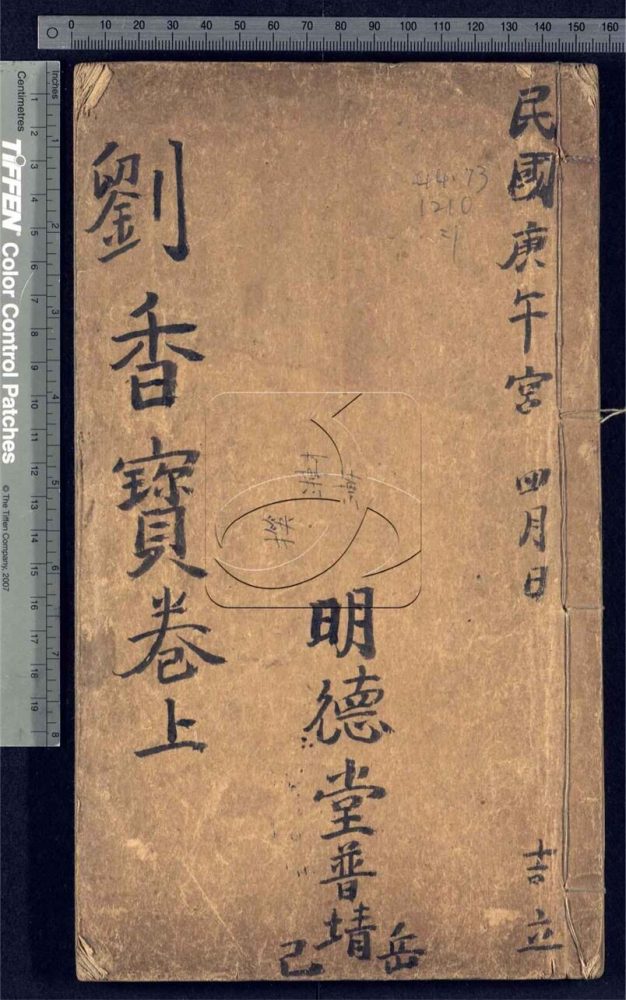 民國庚午宮 四月日 吉立
明德堂普堉
岳
己
劉香寶卷上
44.73
1210
0 10 20 30 40 50 60 70 80 90 100 110 120 130 140 150 160
Inches
Centimetres
1 2 3 4 5 6 7 8 9 10 11 12 13 14 15 16 17 18 19
1 2 3 4 5 6 7 8
TIFFEN Color Control Patches
© The Tiffen Company, 2007